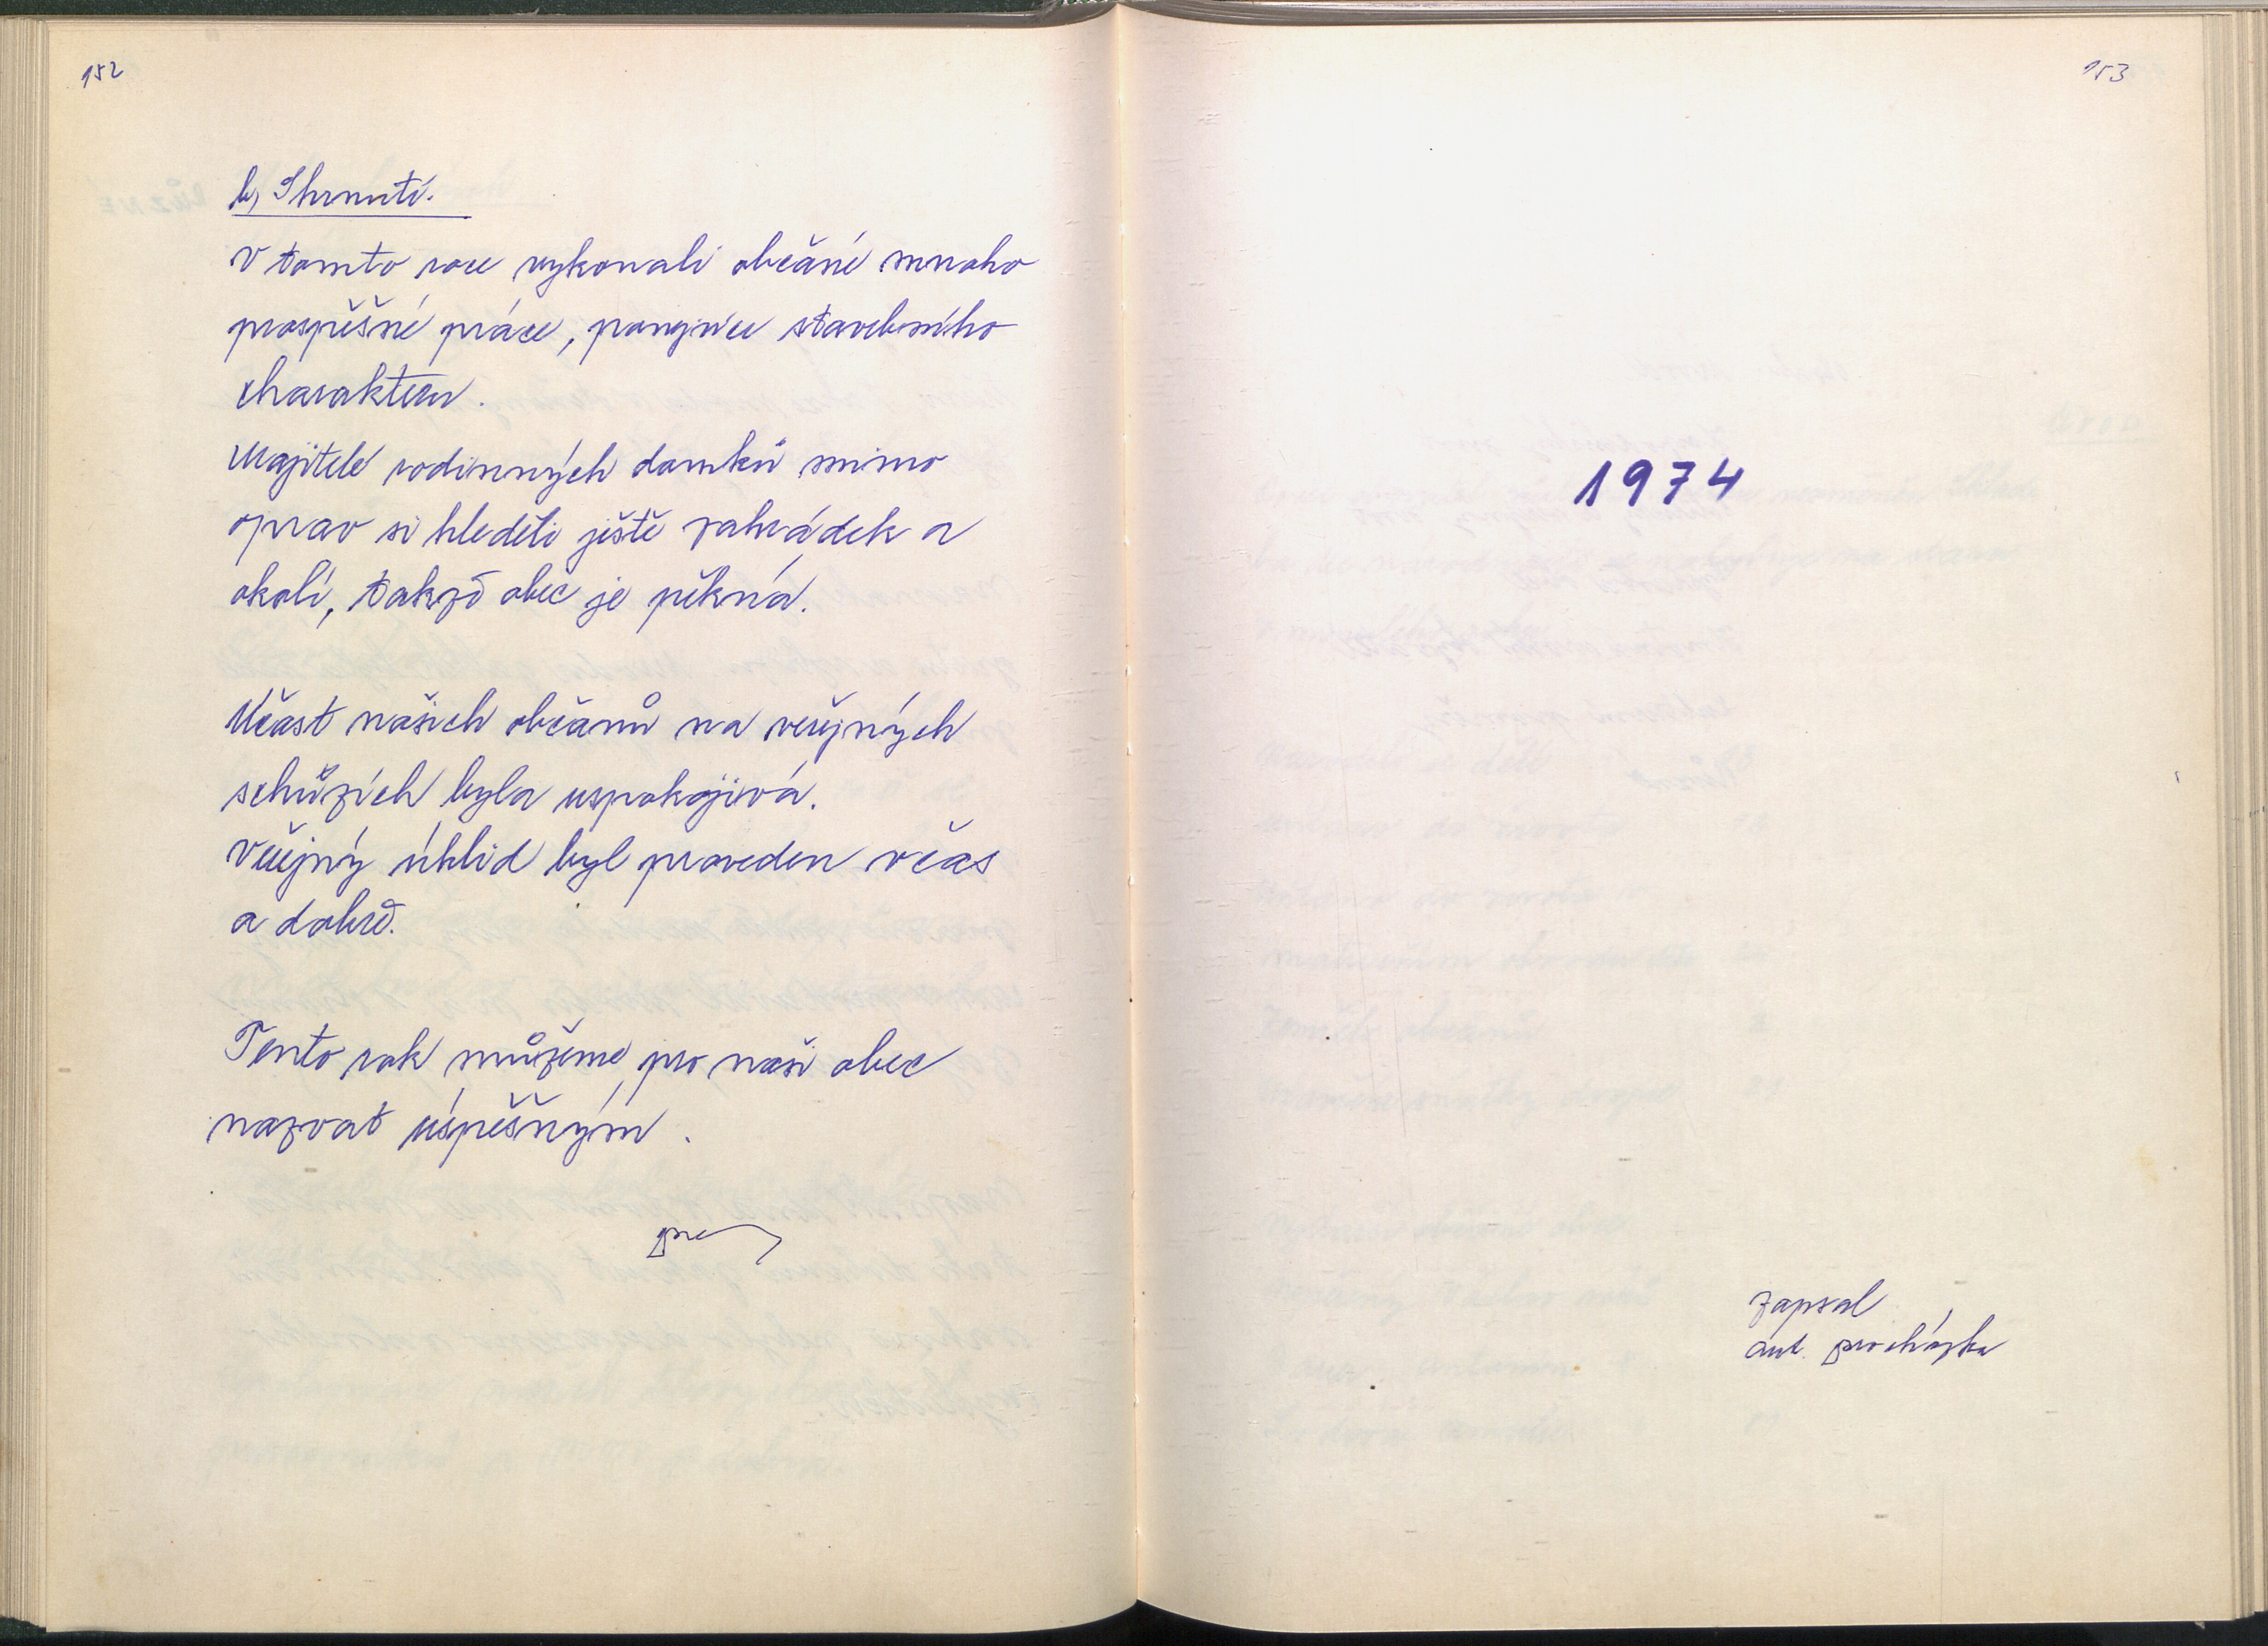 152
b, Shrnutí.
V tomto roce vykonali občané mnoho
prospěšné práce, ponejvíce stavebního
charakteru.
Majitelé rodinných domků mimo
oprav si hleděli ještě zahrádek a
okolí, takže obec je pěkná.
Učast našich občanů na veřejných
schůzích byla uspokojivá.
Veřejný úklid byl proveden včas
a dobře.
Tento rok můžeme pro naši obec
nazvat úspěšným.
153
1974
zapsal
Ant. Procházka